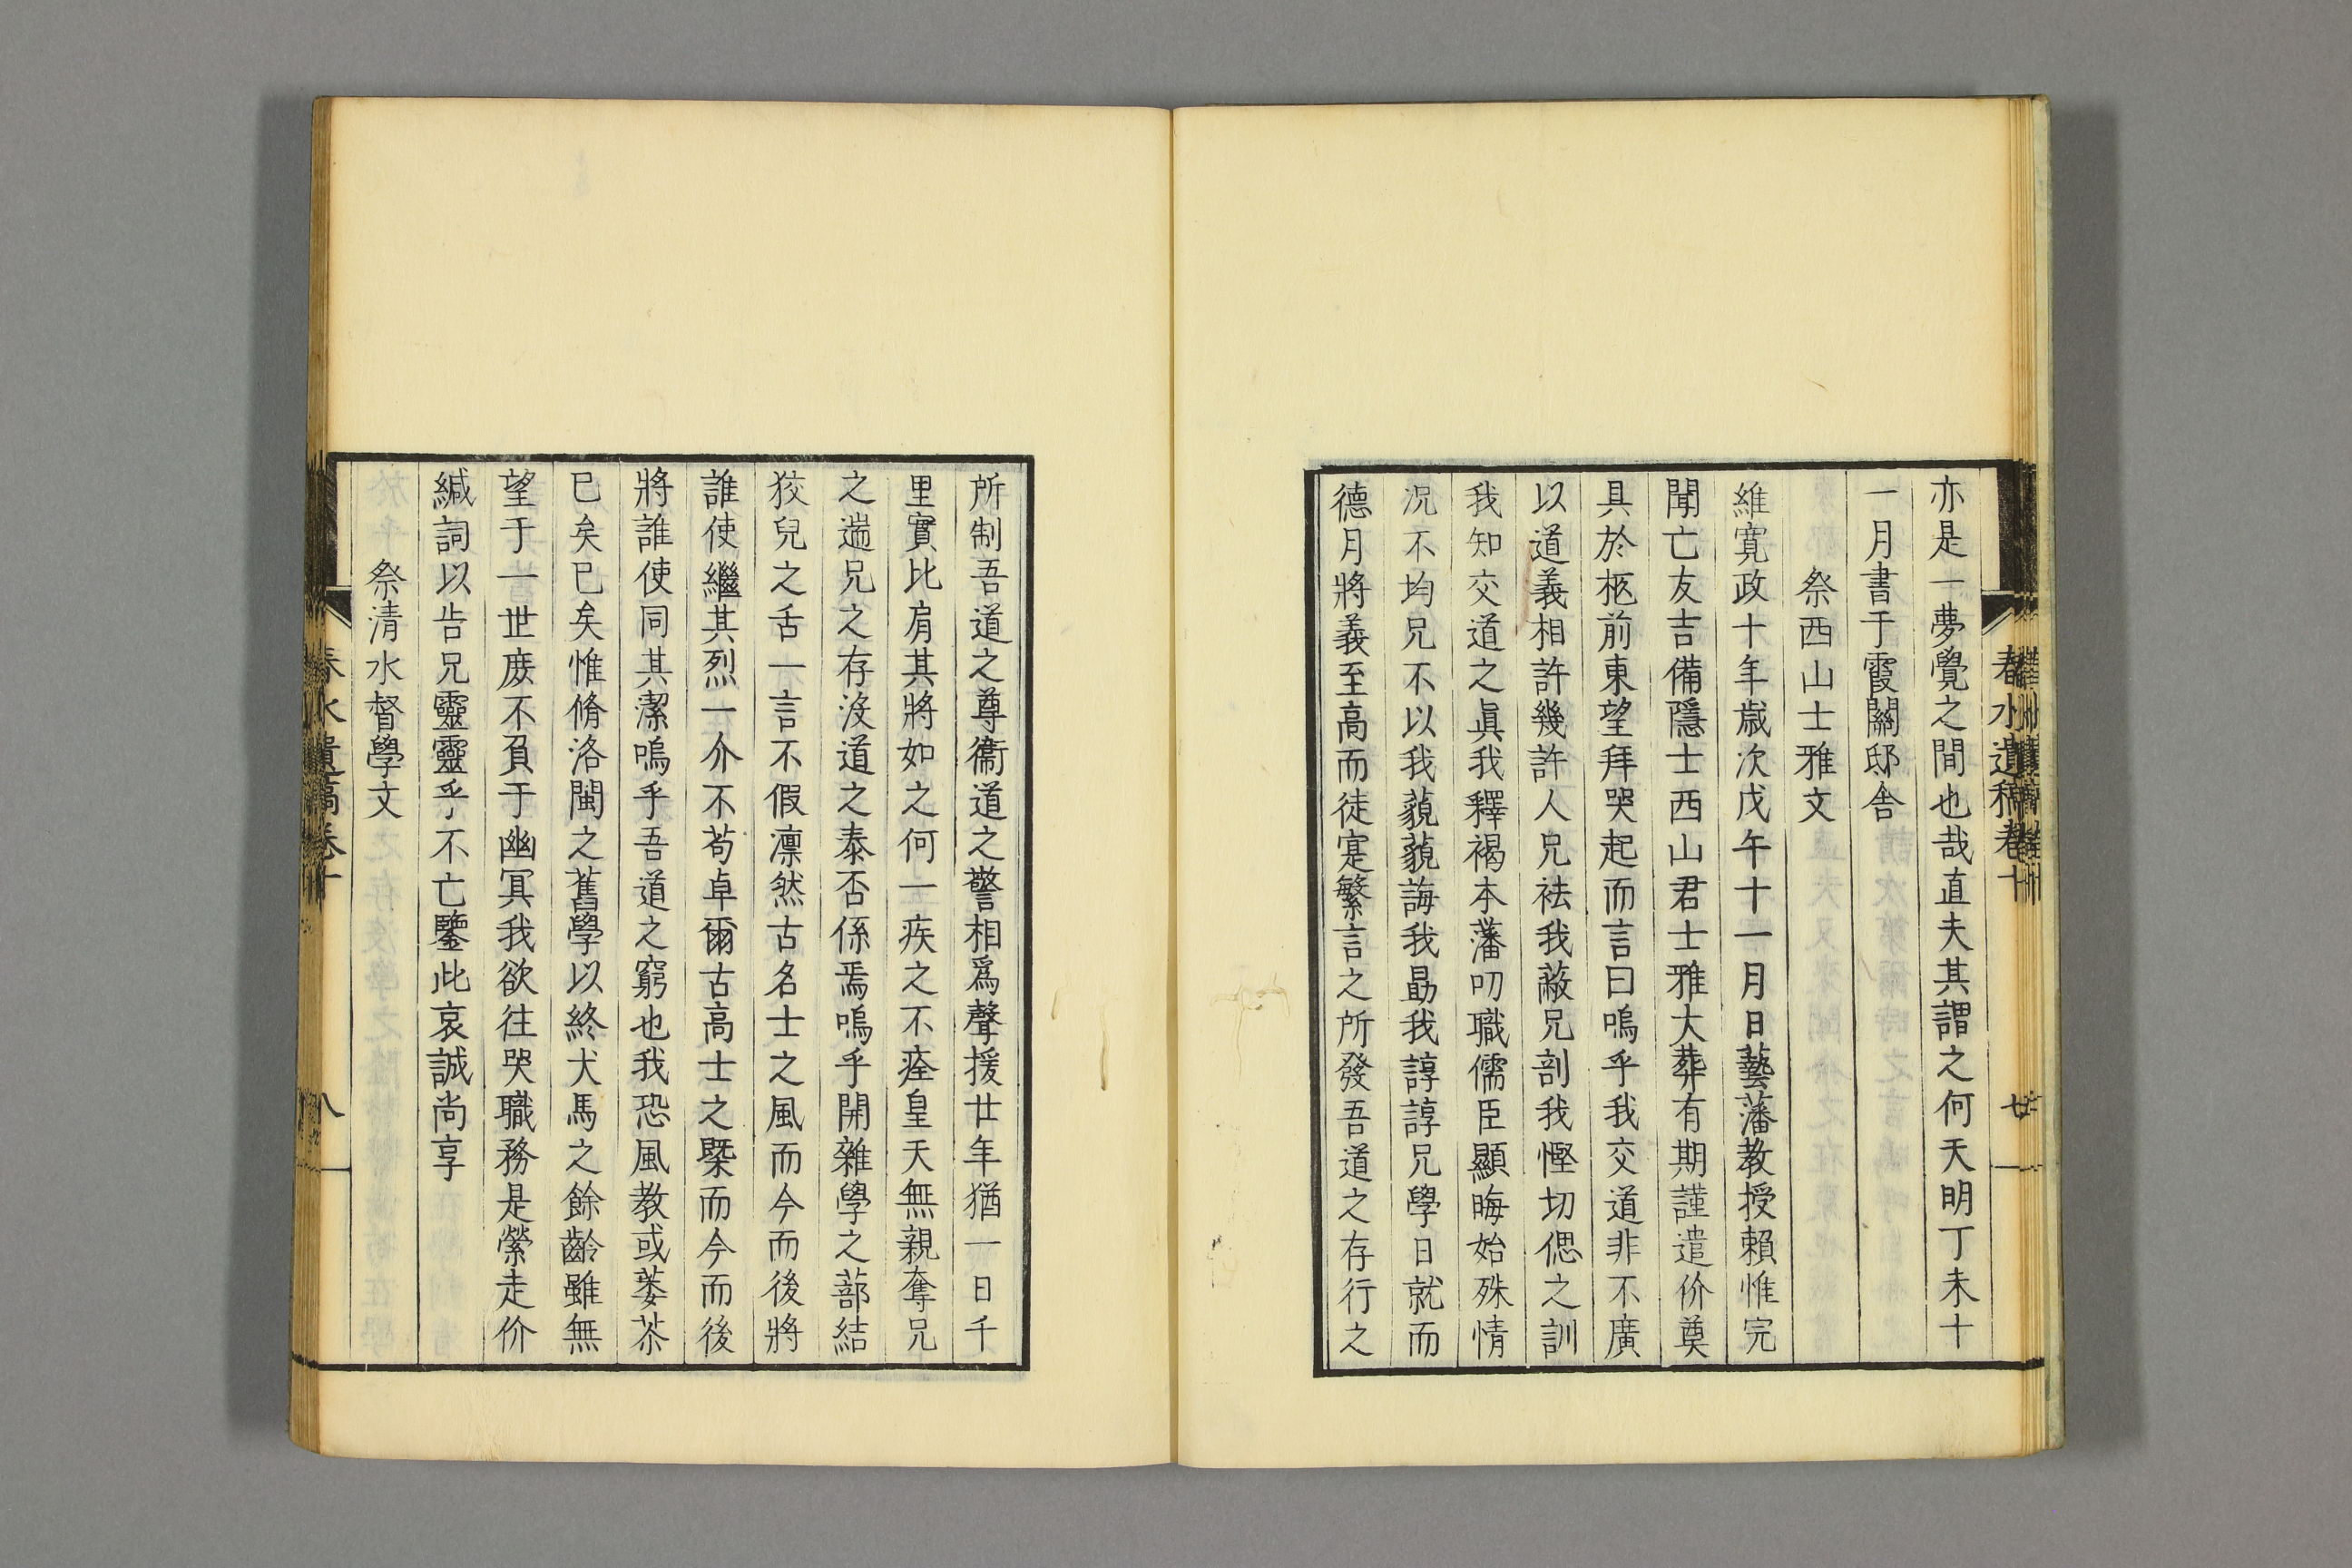 亦是一夢覺之間也哉直夫其謂之何天明丁未十
一月書于霞關邸舍
祭西山士雅文
維寬政十年歳次戊午十一月日藝藩教授賴惟完
聞亡友吉備隱士西山君士雅大葬有期謹遣价奠
具於柩前東望拜哭起而言曰嗚乎我交道非不廣
以道義相許幾許人兄祛我蔽兄剖我慳切偲之訓
我知交道之眞我釋褐本藩叨職儒臣顯晦始殊情
況不均兄不以我藐藐誨我勗我諄諄兄學日就而
德月將義至高而徒寔繁言之所發吾道之存行之
春水遺稿卷十
七
所制吾道之尊衞道之警相爲聲援廿年猶一日千
里實比肩其將如之何一疾之不痊皇天無親奪兄
之遄兄之存沒道之泰否係焉嗚乎開雜學之蔀結
狡兒之舌一言不假凛然古名士之風而今而後將
誰使繼其烈一介不苟卓爾古高士之槩而今而後
將誰使同其潔嗚乎吾道之窮也我恐風教或萎苶
已矣已矣惟脩洛閩之舊學以終犬馬之餘齡雖無
望于一世庶不負于幽冥我欲往哭職務是縈走价
緘詞以告兄靈靈乎不亡鑒此哀誠尚享
祭清水督學文
春水遺稿卷十
八